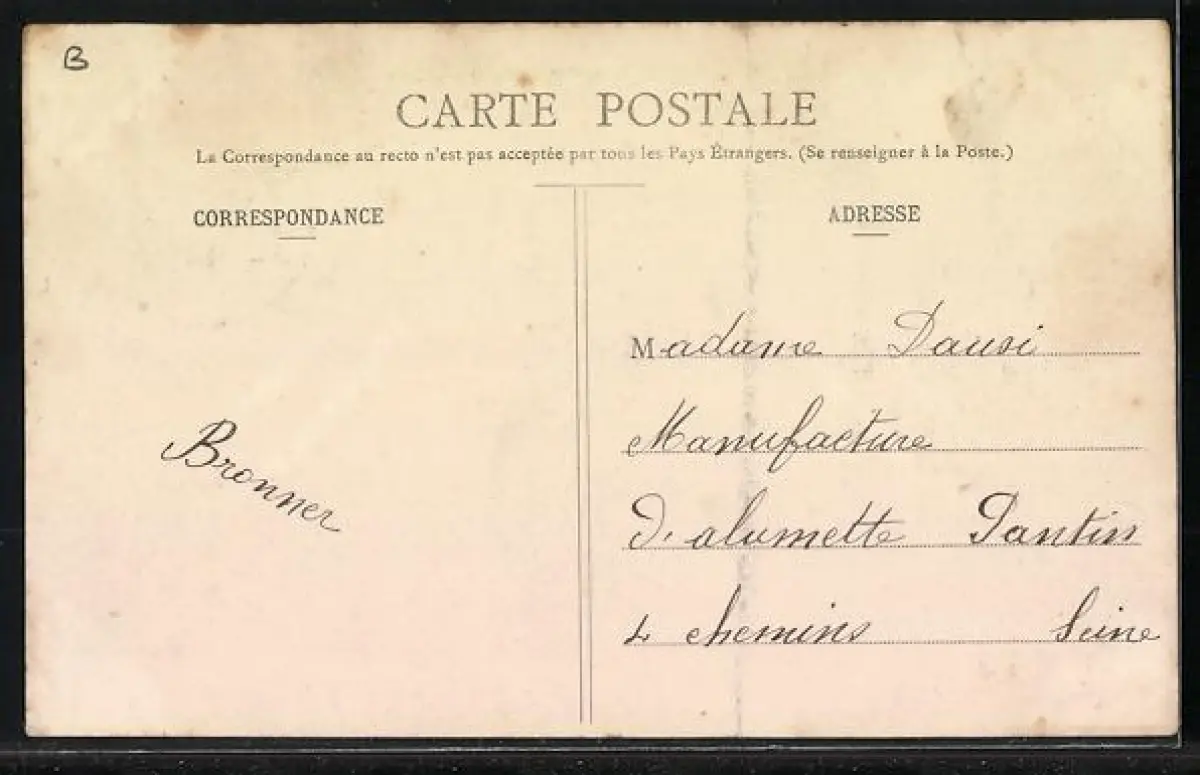 B
CARTE POSTALE
La Correspondance au recto n'est pas acceptée par tous les Pays Étrangers. (Se renseigner à la Poste.)
CORRESPONDANCE
Bronner
ADRESSE
Madame Dausi
Manufacture
D'alumette Pantin
4 chemins Seine